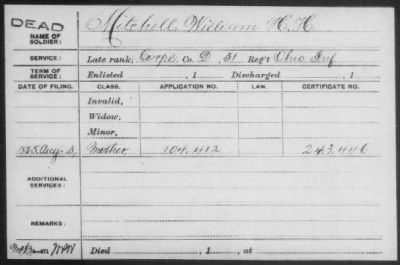 DEAD
NAME OF SOLDIER: Mitchell, William H. H.
SERVICE: Late rank, Corpl Co. D, 31 Reg't Ohio Inf
TERM OF SERVICE: Enlisted , 1 Discharged , 1
DATE OF FILING. CLASS. APPLICATION NO. LAW. CERTIFICATE NO.
Invalid,
Widow,
Minor,
Aug. 3, Mother 104,412 243,446
ADDITIONAL SERVICES:
REMARKS:
Died , 1 , at